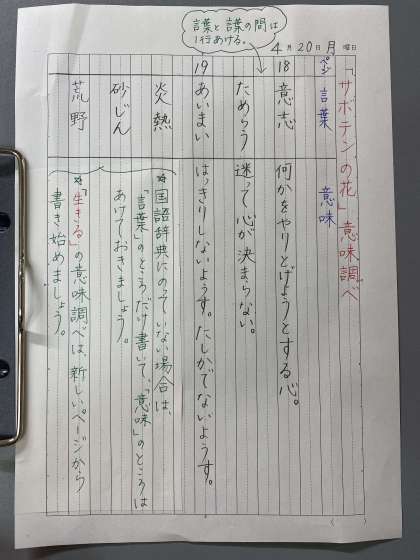 言葉と言葉の間は
1行あける。
4月20日月曜日
「サボテンの花」意味調べ
ページ 言葉 意味
18 意志 何かをやりとげようとする心。
ためらう 迷って心が決まらない。
19 あいまい はっきりしないようす。たしかでないようす。
炎熱
砂じん
荒野
*国語辞典にのっていない場合は、
「言葉」のところだけ書いて、「意味」のところは
あけておきましょう。
*「生きる」の意味調べは、新しいページから
書き始めましょう。